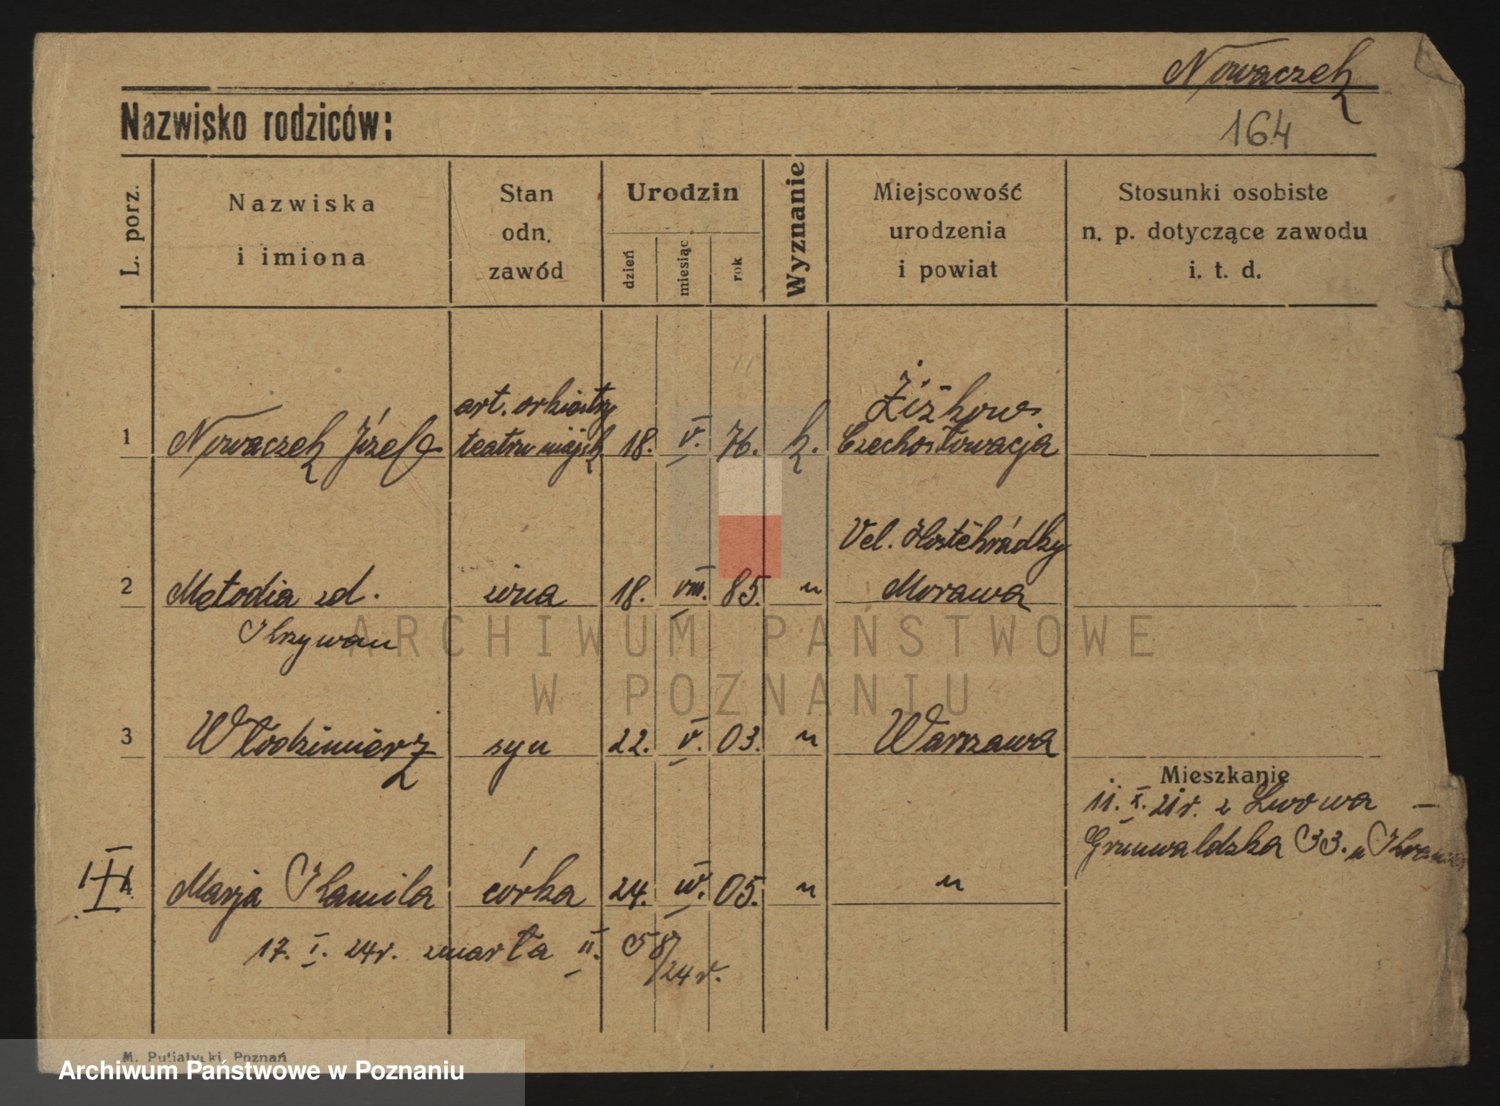 Nowaczek
Nazwisko rodziców:
164
L. porz.
Nazwiska
i imiona
Stan
odn.
zawód
Urodzin
dzień
miesiąc
rok
Wyznanie
Miejscowość
urodzenia
i powiat
Stosunki osobiste
n. p. dotyczące zawodu
i. t. d.
art. orkiestry
Żiżkow
1 Nowaczek Józef teatru miejsk 18. V. 76. k. Czechosłowacja
Vel. Hostěhrádky
2 Metodia zd. żona 18. VIII. 85. " Morawa
ARCHIWUM PAŃSTWOWE
W POZNANIU
3 Włodzimierz syn 22. V. 03. " Warszawa
Mieszkanie
11. X. 21r. z Lwowa —
Grunwaldzka 33.
Marja Kamila córka 24. 05. " "
17. I. 24r. zmarła II. 58/24r.
M. Putiatycki, Poznań
Archiwum Państwowe w Poznaniu